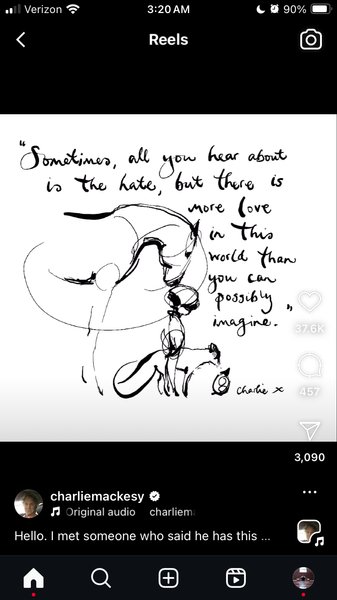 Verizon 3:20 AM 90%
Reels
"Sometimes, all you hear about
is the hate, but there is
more love
in this
world than
you can
possibly
imagine."
charlie x
37.6K
457
3,090
charliemackesy
Original audio charliem
Hello. I met someone who said he has this ...